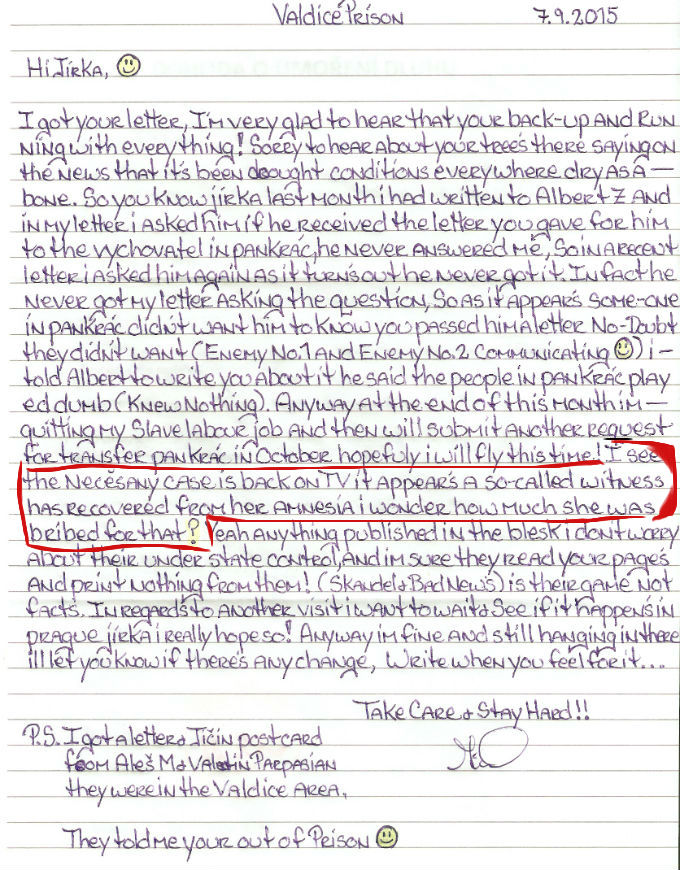 Valdice Prison 7.9.2015
Hi Jirka,
I got your letter, I'm very glad to hear that your back-up and run
ning with everything! Sorry to hear about your tree's there saying on
the news that it's been drought conditions everywhere dry as a –
bone. So you know jirka last month i had written to Albert Ž and
in my letter i asked him if he received the letter you gave for him
to the vychovatel in pankrác, he never answered me, So in a recent
letter i asked him again as it turn's out he never got it. In fact he
never got my letter asking the question, So as it appear's some-one
in pankrác didn't want him to know you passed him a letter No-Doubt
they didn't want (Enemy No.1 and Enemy No.2 Communicating ) i –
told Albert to write you about it he said the people in pankrác play
ed dumb (Knew Nothing). Anyway at the end of this month im –
quitting my Slave labour job and then will submit another request
for transfer pankrác in October hopefuly i will fly this time! I see
the Nečesaný case is back on TV it appear's a so-called witness
has recovered from her amnesia i wonder how much she was
bribed for that? Yeah anything published in the blesk i dont worry
about their under state control, and im sure they read your pages
and print nothing from them! (Skandel & Bad New's) is their game not
facts. In regard's to another visit i want to wait & see if it happen's in
prague jirka i really hope so! Anyway im fine and still hanging in there
ill let you know if there's any change, Write when you feel for it....
Take Care & Stay Hard!!
P.S. I got a letter & Jičín postcard
from Aleš M & Valentin Parpasian
they were in the Valdice Area.
They told me your out of Prison